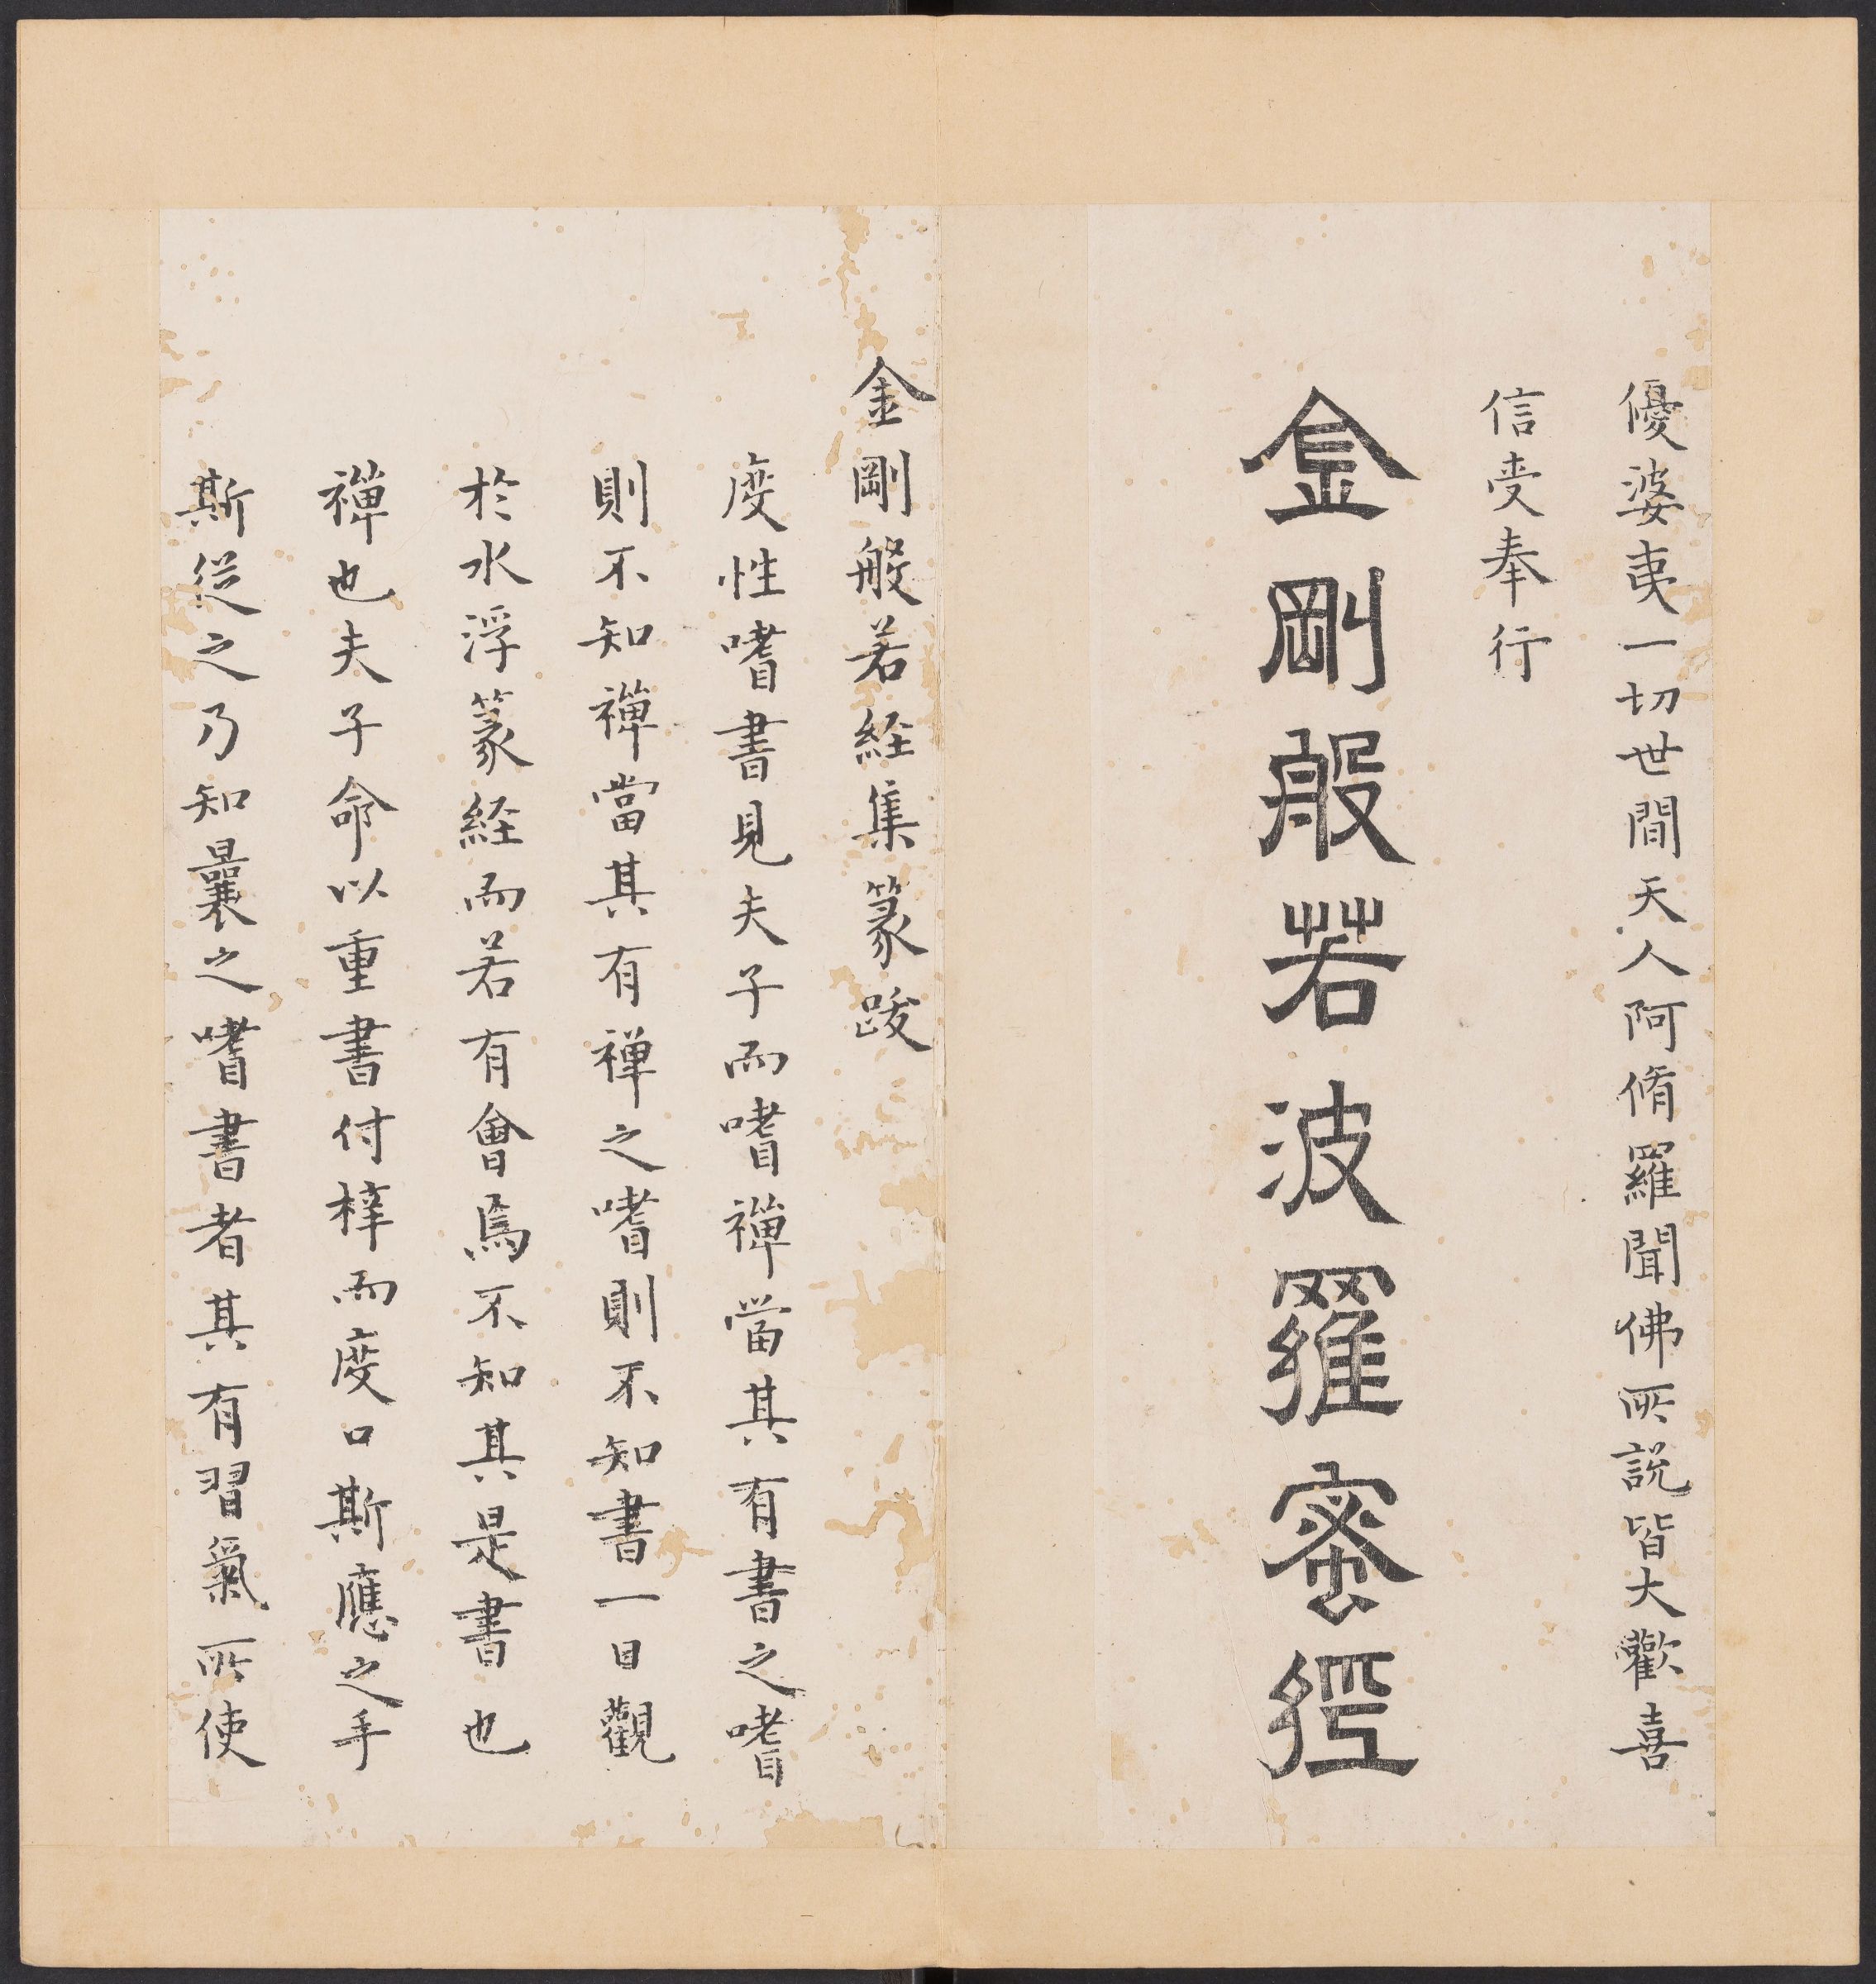 優婆夷一切世間天人阿脩羅聞佛所說皆大歡喜
信受奉行
金剛般若波羅蜜經
金剛般若経集篆跋
度性嗜書見夫子而嗜禪當其有書之嗜
則不知禪當其有禪之嗜則不知書一日觀
於水浮篆経而若有會焉不知其是書也
禪也夫子命以重書付梓而度口斯應之手
斯從之乃知曩之嗜書者其有習氣所使